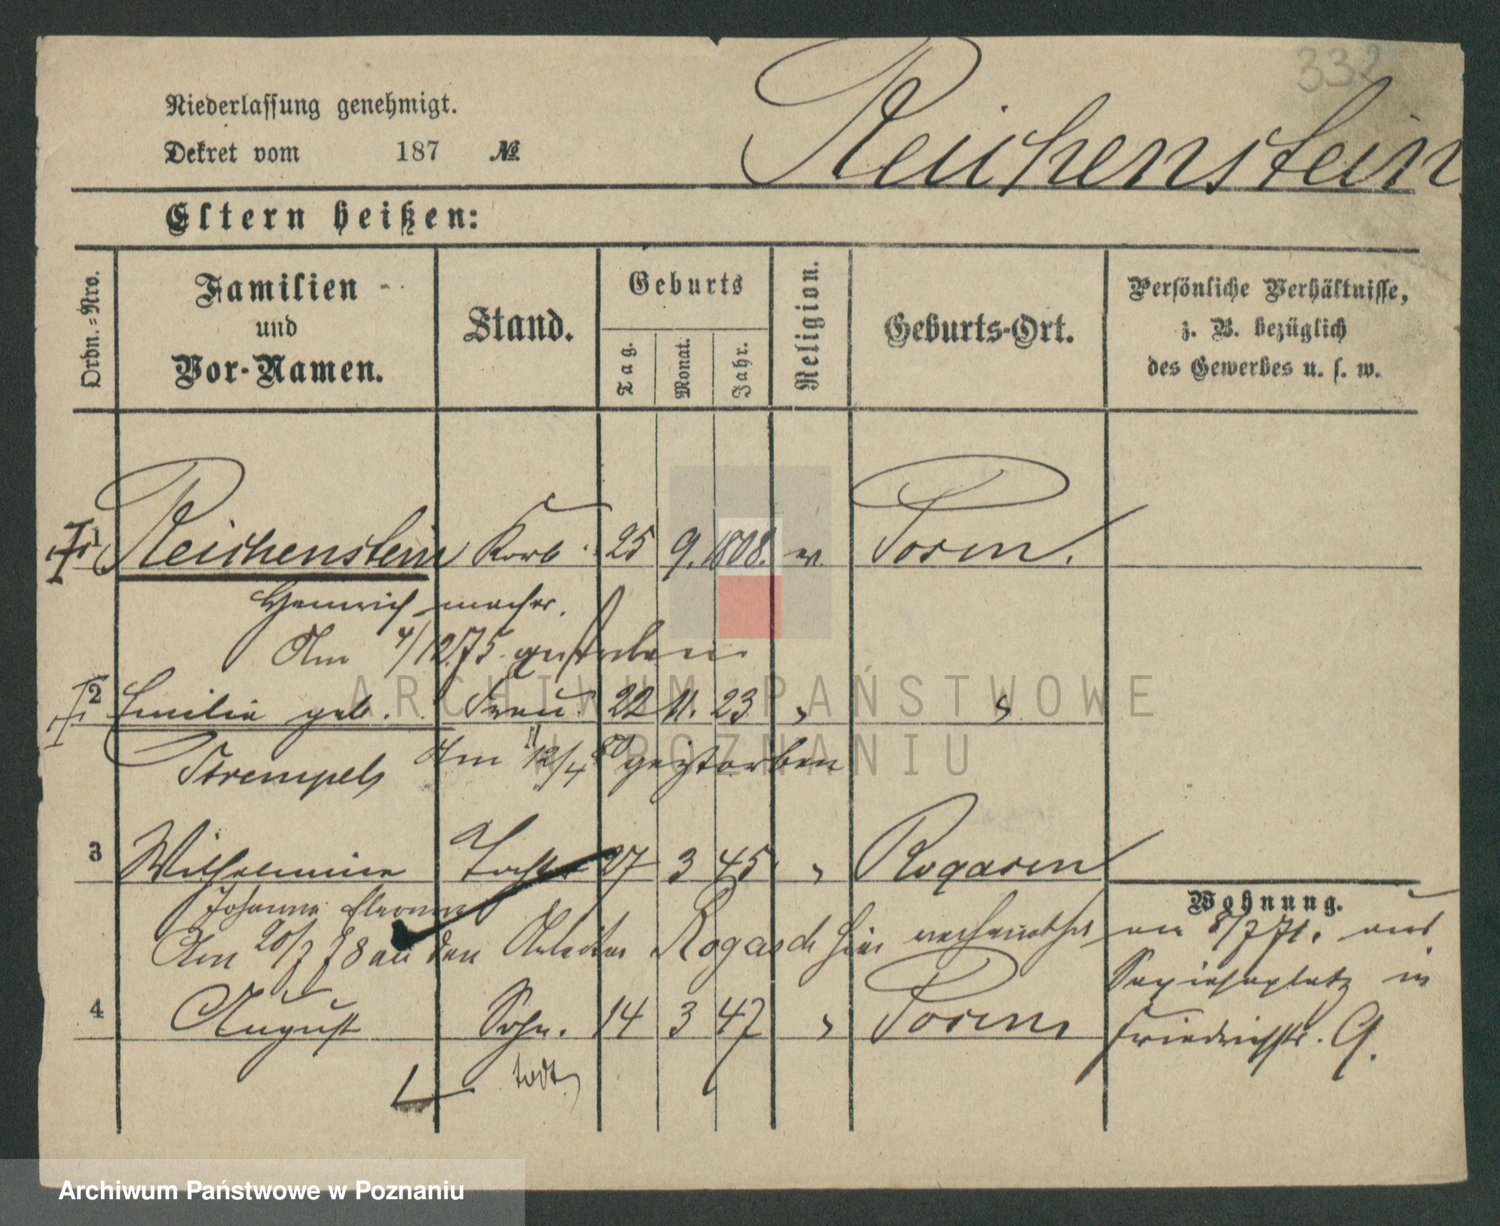 332
Niederlassung genehmigt.
Dekret vom 187 №
Reichenstein
Eltern heißen:
Ordn.-Nro.
Familien
und
Vor-Namen.
Stand.
Geburts
Tag.
Monat.
Jahr.
Religion.
Geburts-Ort.
Persönliche Verhältnisse,
z. B. bezüglich
des Gewerbes u. s. w.
1 Reichenstein Korb 25 9. 1808. Posen.
Heinrich macher.
Am 4/12.75. gestorben
2 Emilie geb. Frau 22 11. 23 " "
Strempel Am 12/4 80 gestorben
3 Wilhelmine Tochter 27 3 45. " Rogasen
Johanna
Am 20/7 78 an den Rogasch hier verheirathet
4 August Sohn. 14 3 47 " Posen
todt
Wohnung.
8/7 71. aus
Sapiehaplatz in
Friedrichstr. 9.
ARCHIWUM PAŃSTWOWE
W POZNANIU
Archiwum Państwowe w Poznaniu